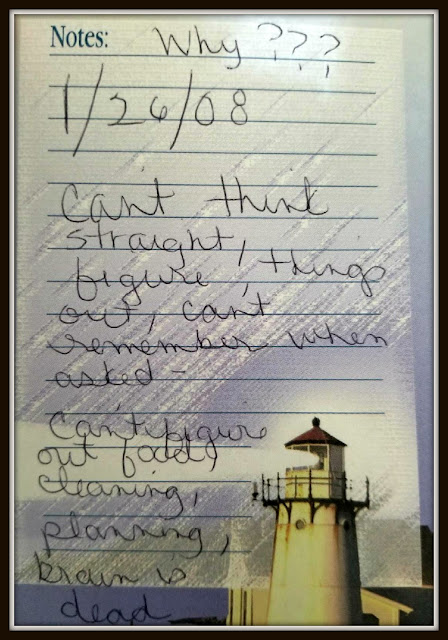 Notes: Why???
1/26/08
Can't think
straight,
figure things
out, can't
remember when
asked -
Can't figure
out food,
cleaning,
planning,
brain is
dead